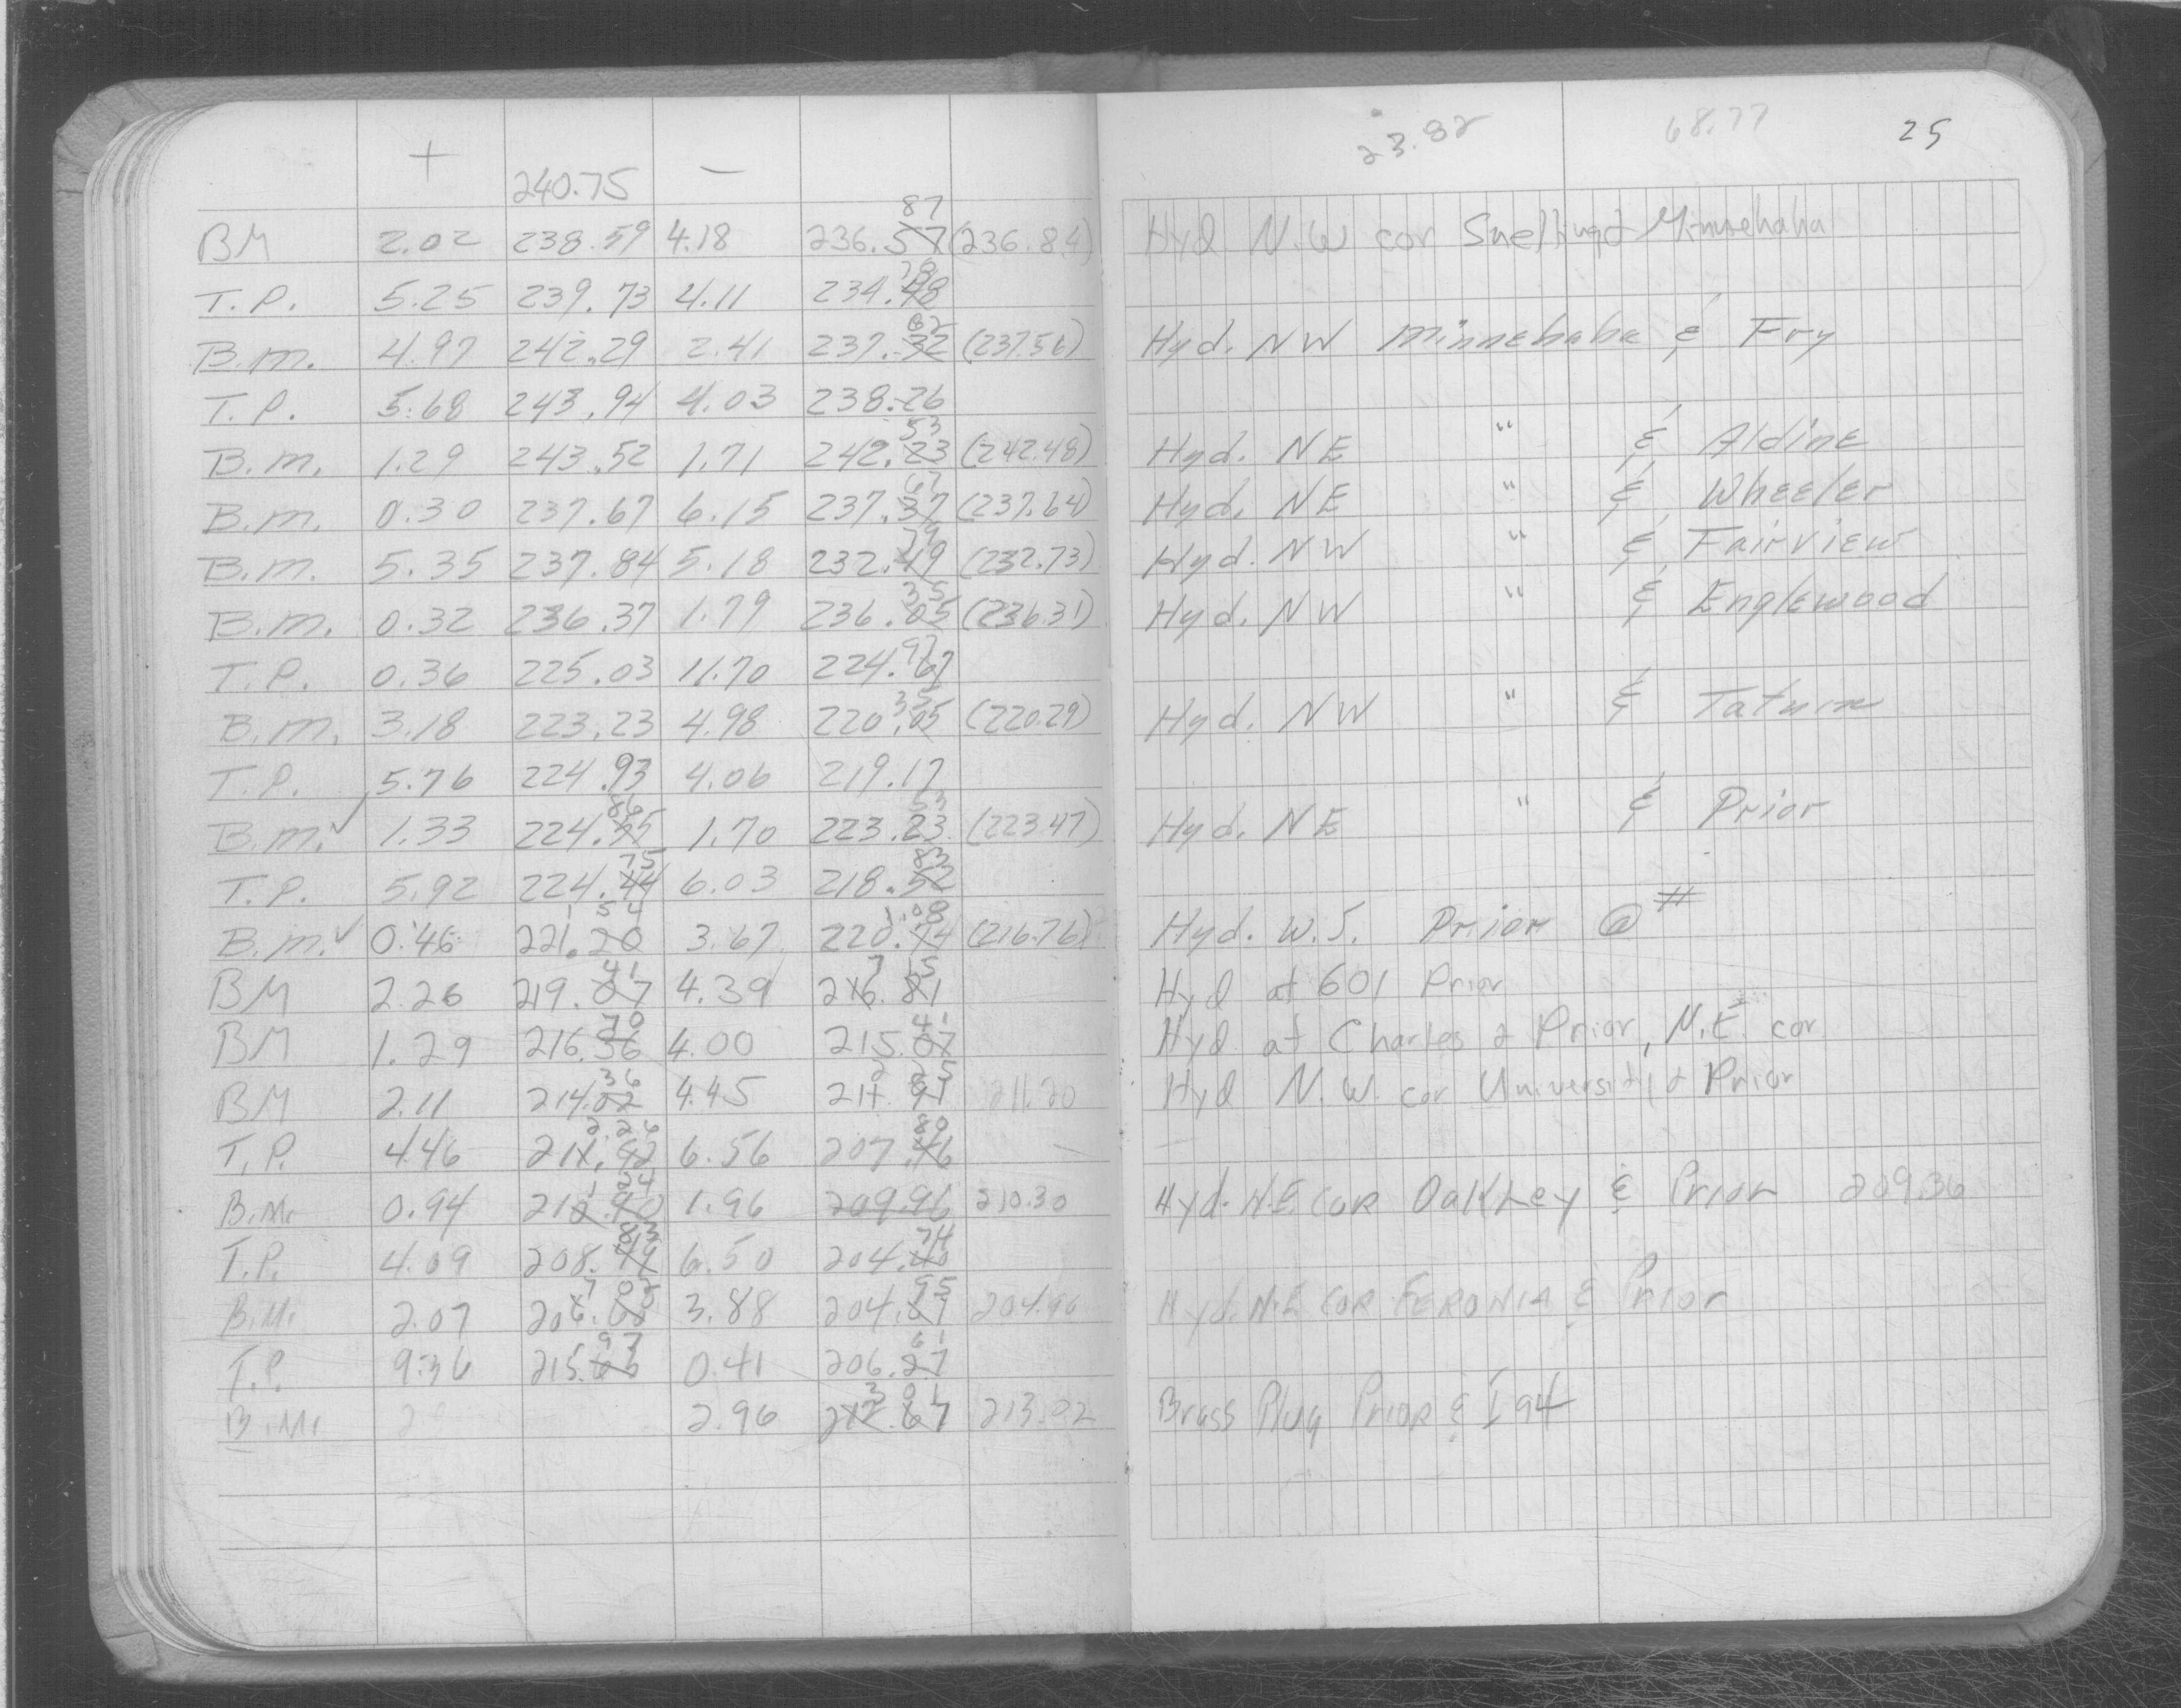 23.82 68.77 25
+ 240.75 —
87
BM 2.02 238.59 4.18 236.57 (236.84) Hyd N.W cor Snelling & Minnehaha
78
T.P. 5.25 239.73 4.11 234.48
62
B.M. 4.97 242.29 2.41 237.32 (237.56) Hyd. NW Minnehaha & Fry
T.P. 5.68 243.94 4.03 238.26
53
B.M. 1.29 243.52 1.71 242.23 (242.48) Hyd. NE " & Aldine
67
B.M. 0.30 237.67 6.15 237.37 (237.64) Hyd. NE " & Wheeler
79
B.M. 5.35 237.84 5.18 232.49 (232.73) Hyd. NW " & Fairview
35
B.M. 0.32 236.37 1.79 236.05 (236.31) Hyd. NW " & Englewood
97
T.P. 0.36 225.03 11.70 224.67
35
B.M. 3.18 223.23 4.98 220.05 (220.29) Hyd. NW " & Tatum
T.P. 5.76 224.93 4.06 219.17
86 53
B.M.✓ 1.33 224.55 1.70 223.23 (223.47) Hyd. NE " & Prior
75 83
T.P. 5.92 224.44 6.03 218.52
1 54 1.08
B.M.✓ 0.46 221.20 3.67 220.74 (216.76) Hyd. W.S. Prior @ #
41 7 15
BM 2.26 219.07 4.39 216.81 Hyd at 601 Prior
70 41
BM 1.29 216.36 4.00 215.07 Hyd at Charles & Prior, N.E. cor
36 2 25
BM 2.11 214.02 4.45 211.91 211.20 Hyd N.W. cor University & Prior
2.26 80
T.P. 4.46 211.92 6.56 207.46 —
1 24
B.M. 0.94 210.90 1.96 209.96 210.30 Hyd. N.E COR Oakley & Prior 209.36
83 74
T.P. 4.09 208.49 6.50 204.40
7 02 95
B.M. 2.07 206.68 3.88 204.61 204.96 Hyd. N.E COR FERONIA & Prior
97 61
T.P. 9.36 215.63 0.41 206.27
3 01
B.M. 2.96 212.67 213.02 Brass Plug PRIOR & I 94